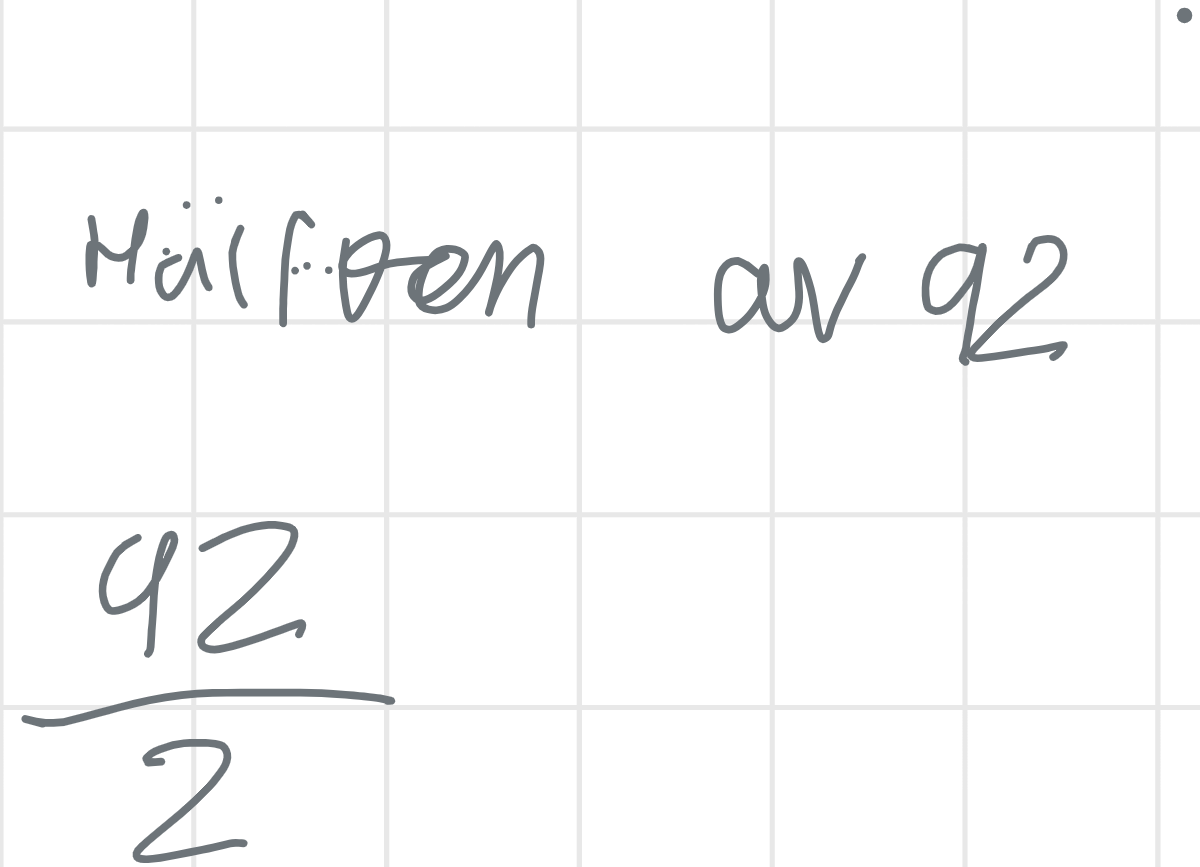 Hälften av 92
92
2